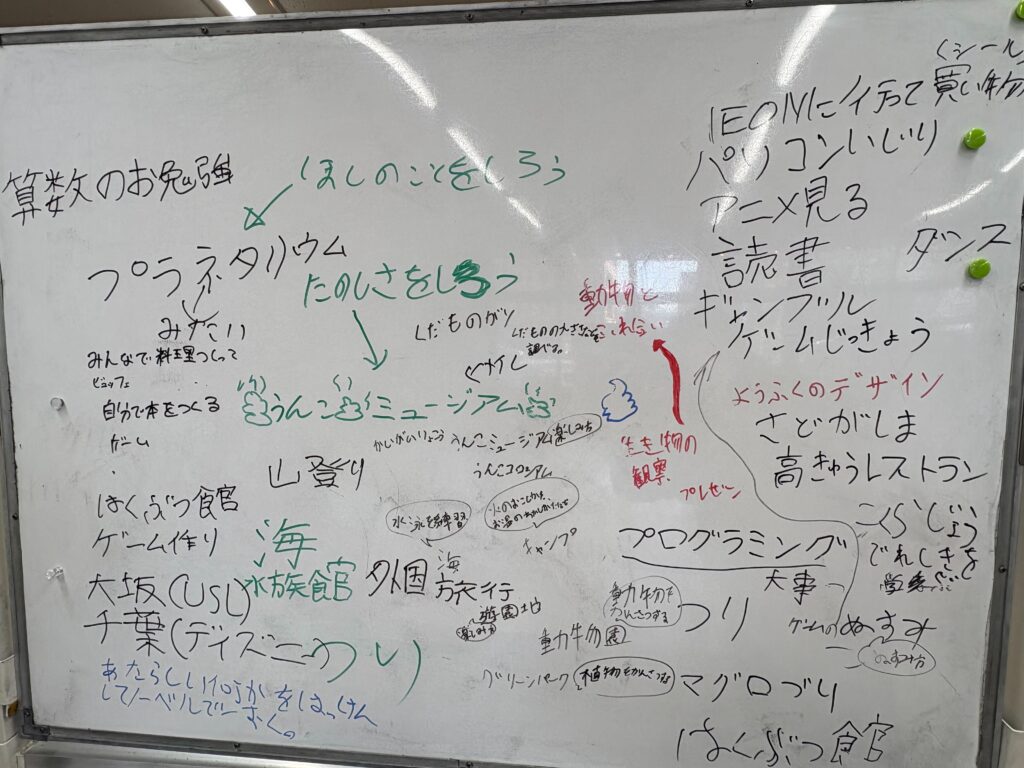 算数のお勉強
ほしのことをしろう
プラネタリウム
みたい
たのしさをしろう
みんなで料理つくって
ビュッフェ
自分で本をつくる
ゲーム
うんこミュージアム
くだものがり
くだものの大きさなどを
調べる。
かいがいりょこう
うんこミュージアム楽しみ方
うんこコロシアム
動物と
生き物の
観察
プレゼン
山登り
はくぶつ館
ゲーム作り
大坂(USJ)
千葉(ディズニー)
海
水族館
つり
水泳を練習
海
外国旅行
遊園地
楽しみ方
キャンプ
動物園
動物を
かんさつする
グリーンパーク
植物をかんさつする
あたらしい何かをはっけん
してノーベルで
(シール)
IEONに行って買い物
パソコンいじり
アニメ見る
読書
ダンス
ギャンブル
ゲームじっきょう
ようふくのデザイン
さどがしま
高きゅうレストラン
プログラミング
大事
つり
ゲームの
マグロづり
はくぶつ館